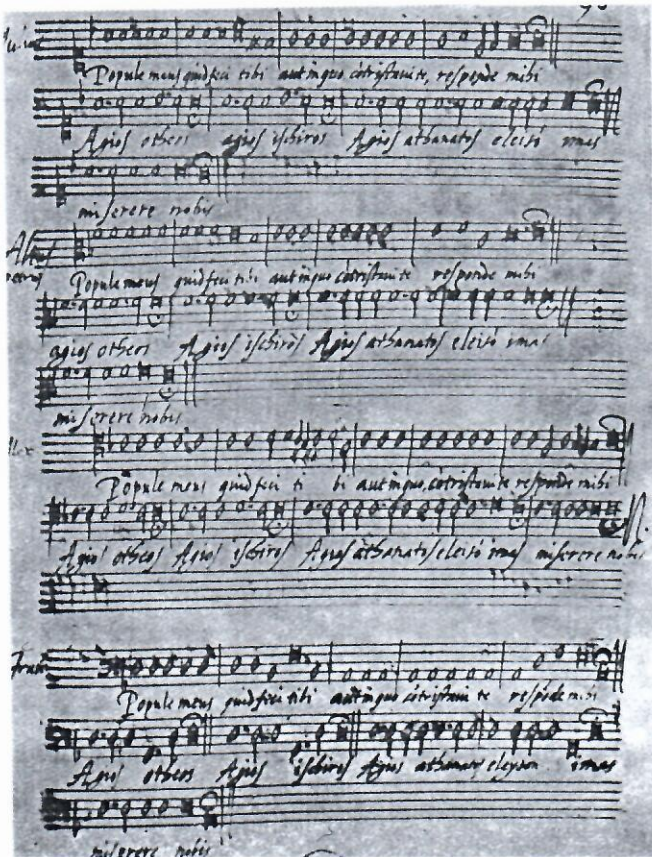 Popule meus quid feci tibi aut inquo cōtristavi te, responde mihi
Agios otheos agios ischiros Agios athanatos eleisō imas
miserere nobis
Altus
Popule meus quid feci tibi aut inquo cōtristavi te responde mihi
agios otheos Agios ischiros Agios athanatos eleisō imas
miserere nobis
Popule meus quid feci ti bi aut inquo cōtristavi te responde mihi
Agios otheos Agios ischiros Agios athanatos eleisō imas miserere nobis
Popule meus quid feci tibi aut inquo cōtristavi te respōde mihi
Agios otheos Agios ischiros Agios athanatos eleyson imas
miserere nobis